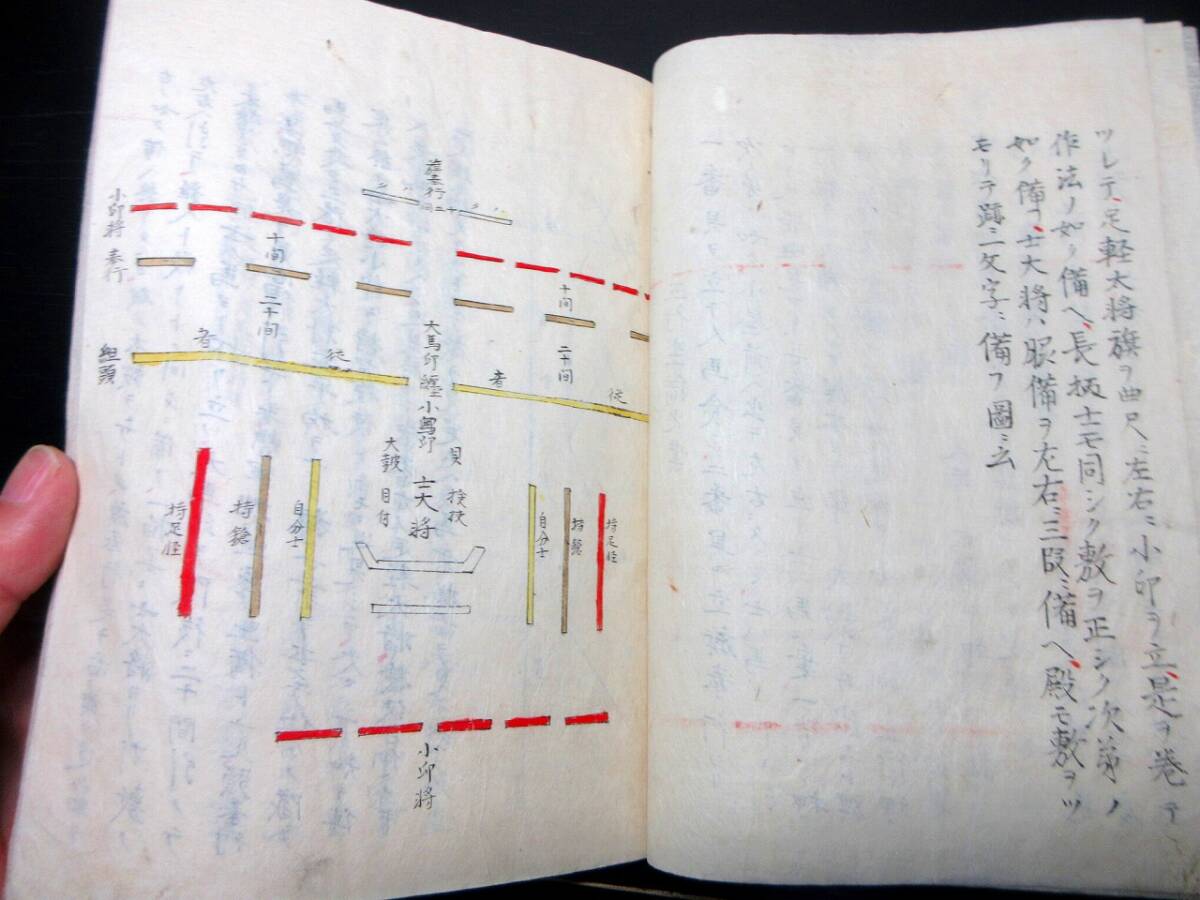 ツレテ、足軽大将旗ヲ曲尺ニ左右ニ小印ヲ立、是ヲ巻テ
作法ノ如ク備ヘ、長柄士モ同シク敷ヲ正シク次第ノ
如ク備フ、士大将ハ脇備ヲ左右ニ三段ニ備ヘ、殿モ敷ヲツ
モリテ跡ニ一文字ニ備フ圖ニ云
旌奉行
小印将
奉行
十間
二十間
十间
二十间
組頭
者
徒
者
徒
大馬印
小馬印
貝
大皷
目付
士大将
検使
持足軽
持鎗
自分士
自分士
持鎗
持足軽
小印将